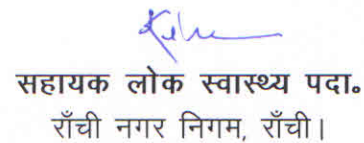 सहायक लोक स्वास्थ्य पदा॰
राँची नगर निगम, राँची।